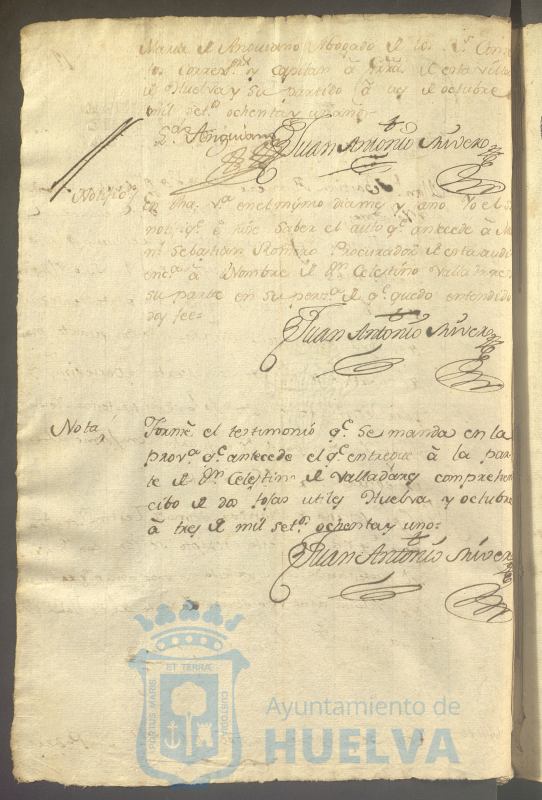 Maria de Anguiano Abogado de los Rs. Conse
jos Corregor. y Capitan à Grra. de esta villa
de Huelva y su partido à tres de octubre
mil setos. ochenta y un años
Anguiano
Juan Antonio Rivero
Notifon.
En dha. va. en el mismo dia mes y año Yo el Ss.
noto. qe. è hize saber el auto qe. antecede à
Sebastian Romero Procurador de esta audi
enca. à Nombre de Dn. Celestino Valladares
su parte en su perza. de qe. quedo entendido
doy fee=
Juan Antonio Rivero
Nota,
Formè el testimonio qe. se manda en la
prova. qe. antecede el qe. entregue à la par
te de Dn. Celestino de Valladares comprehen
cibo de dos fojas utiles Huelva y octubre
à tres de mil setos. ochenta y uno=
Juan Antonio Rivero
PORTUS MARIS
ET TERRÆ
CUSTODIA
Ayuntamiento de
HUELVA